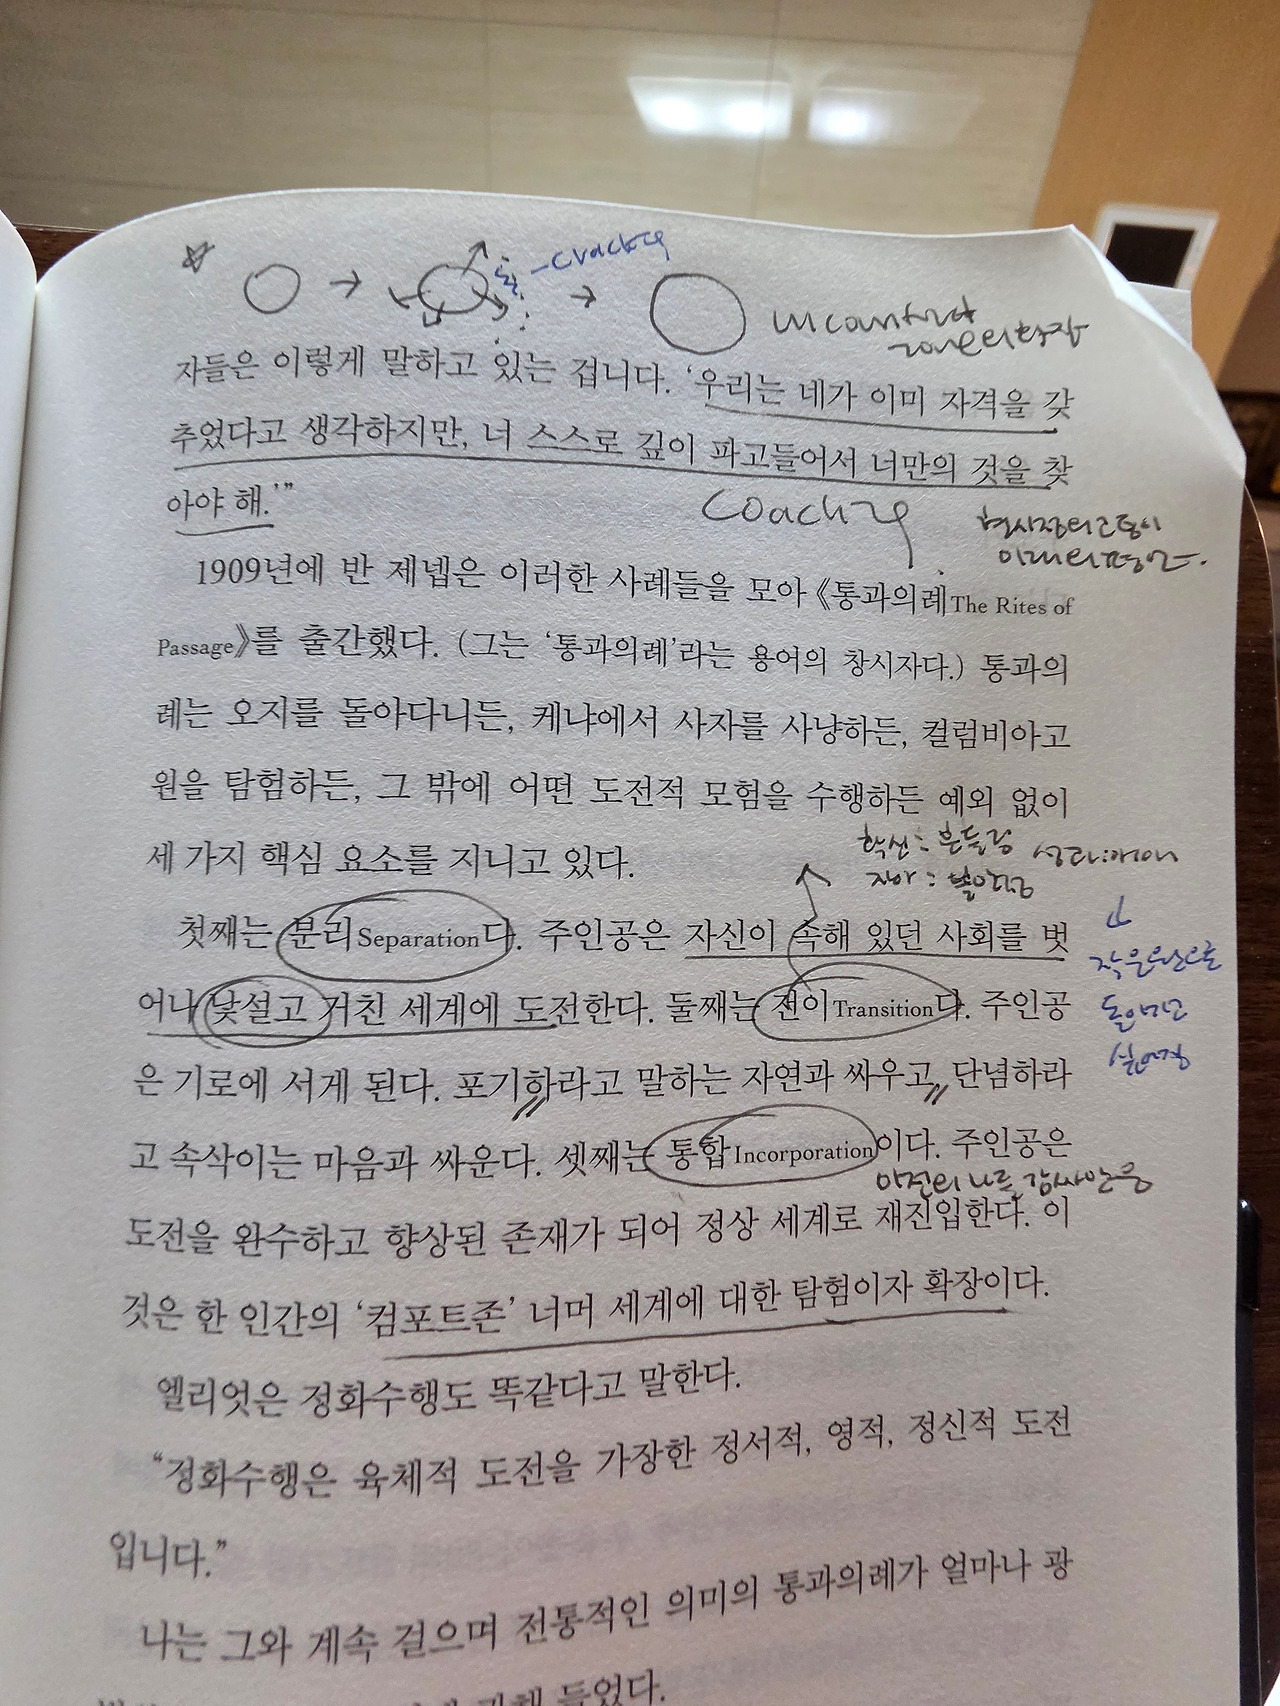 -cracking
자들은 이렇게 말하고 있는 겁니다. ‘우리는 네가 이미 자격을 갖
추었다고 생각하지만, 너 스스로 깊이 파고들어서 너만의 것을 찾
아야 해.’”
Coaching
현시점의 고통이
미래의 평안.
1909년에 반 제넵은 이러한 사례들을 모아 《통과의례The Rites of
Passage》를 출간했다. (그는 ‘통과의례’라는 용어의 창시자다.) 통과의
례는 오지를 돌아다니든, 케냐에서 사자를 사냥하든, 컬럼비아고
원을 탐험하든, 그 밖에 어떤 도전적 모험을 수행하든 예외 없이
세 가지 핵심 요소를 지니고 있다.
확신: 흔들림
자아:
첫째는 분리Separation다. 주인공은 자신이 속해 있던 사회를 벗
어나 낯설고 거친 세계에 도전한다. 둘째는 전이Transition다. 주인공
은 기로에 서게 된다. 포기하라고 말하는 자연과 싸우고, 단념하라
고 속삭이는 마음과 싸운다. 셋째는 통합Incorporation이다. 주인공은
나를 감싸안음
도전을 완수하고 향상된 존재가 되어 정상 세계로 재진입한다. 이
것은 한 인간의 ‘컴포트존’ 너머 세계에 대한 탐험이자 확장이다.
엘리엇은 정화수행도 똑같다고 말한다.
“정화수행은 육체적 도전을 가장한 정서적, 영적, 정신적 도전
입니다.”
나는 그와 계속 걸으며 전통적인 의미의 통과의례가 얼마나 광
들었다.